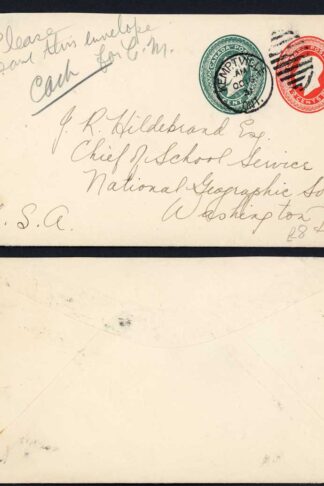 Please
save this envelope
for C.M.
Cash
CANADA POS
CENTS
KEMPTVILLE
AM
OC
ONT.
CENTS
J. R. Hildebrand Esq.
Chief of School Service
National Geographic So
Washington
S. A.
£8